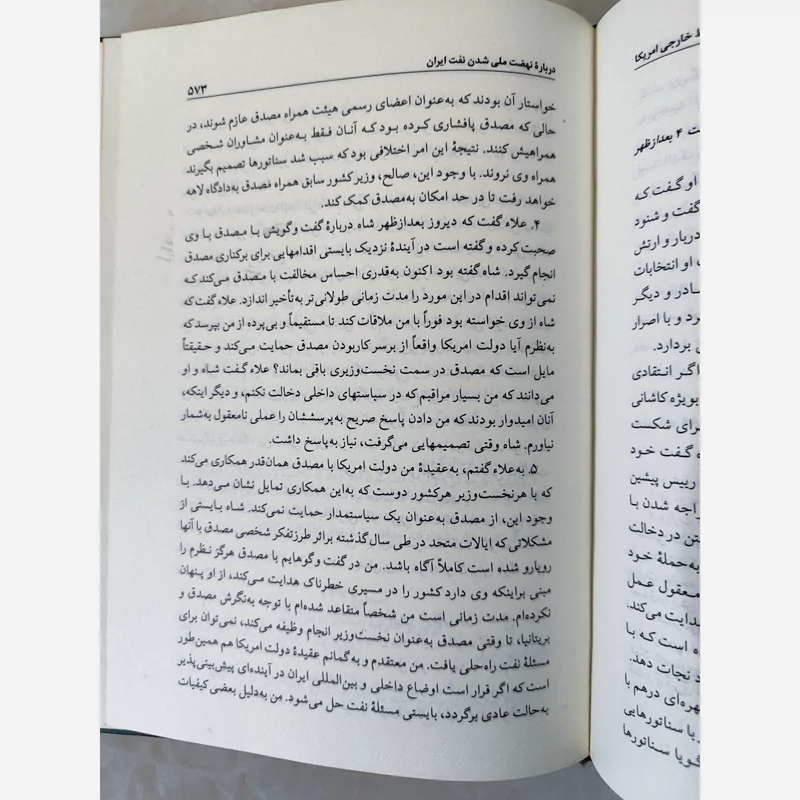 دربارهٔ نهضت ملی شدن نفت ایران
۵۷۳
خواستار آن بودند که به‌عنوان اعضای رسمی هیئت همراه مصدق عازم شوند، در
حالی که مصدق پافشاری کرده بود که آنان فقط به‌عنوان مشاوران شخصی
همراهیش کنند. نتیجهٔ این امر اختلافی بود که سبب شد سناتورها تصمیم بگیرند
همراه وی نروند. با وجود این، صالح، وزیر کشور سابق همراه مصدق به‌دادگاه لاهه
خواهد رفت تا در حد امکان به‌مصدق کمک کند.
۴. علاء گفت که دیروز بعدازظهر شاه دربارهٔ گفت وگویش با مصدق با وی
صحبت کرده و گفته است در آیندهٔ نزدیک بایستی اقدامهایی برای برکناری مصدق
انجام گیرد. شاه گفته بود اکنون به‌قدری احساس مخالفت با مصدق می‌کند که
نمی‌تواند اقدام در این مورد را مدت زمانی طولانی‌تر به‌تأخیر اندازد. علاء گفت که
شاه از وی خواسته بود فوراً با من ملاقات کند تا مستقیماً و بی‌پرده از من بپرسد که
به‌نظرم آیا دولت امریکا واقعاً از برسر کاربودن مصدق حمایت می‌کند و حقیقتاً
مایل است که مصدق در سمت نخست‌وزیری باقی بماند؟ علاء گفت شاه و او
می‌دانند که من بسیار مراقبم که در سیاستهای داخلی دخالت نکنم، و دیگر اینکه،
آنان امیدوار بودند که من دادن پاسخ صریح به‌پرسششان را عملی نامعقول به‌شمار
نیاورم. شاه وقتی تصمیمهایی می‌گرفت، نیاز به‌پاسخ داشت.
۵. به‌علاء گفتم، به‌عقیدهٔ من دولت امریکا با مصدق همان‌قدر همکاری می‌کند
که با هرنخست‌وزیر هرکشور دوست که به‌این همکاری تمایل نشان می‌دهد. با
وجود این، از مصدق به‌عنوان یک سیاستمدار حمایت نمی‌کند. شاه بایستی از
مشکلاتی که ایالات متحد در طی سال‌گذشته براثر طرزتفکر شخصی مصدق با آنها
رویارو شده است کاملاً آگاه باشد. من در گفت وگوهایم با مصدق هرگز نظرم را
مبنی براینکه وی دارد کشور را در مسیری خطرناک هدایت می‌کند، از او پنهان
نکرده‌ام. مدت زمانی است من شخصاً متقاعد شده‌ام با توجه به‌نگرش مصدق و
بریتانیا، تا وقتی مصدق به‌عنوان نخست‌وزیر انجام وظیفه می‌کند، نمی‌توان برای
مسئلهٔ نفت راه‌حلی یافت. من معتقدم و به‌گمانم عقیدهٔ دولت امریکا هم همین‌طور
است که اگر قرار است اوضاع داخلی و بین‌المللی ایران در آینده‌ای پیش‌بینی‌پذیر
به‌حالت عادی برگردد، بایستی مسئلهٔ نفت حل می‌شود. من به‌دلیل بعضی کیفیات
خارجی امریکا
۴ بعدازظهر
او گفت که
گفت و شنود
دربار و ارتش
او انتخابات
و دیگر
و با اصرار
بردارد.
اگر انتقادی
بویژه کاشانی
شکست
گفت خود
رییس پیشین
شدن با
در دخالت
به‌حملهٔ خود
معقول عمل
هدایت می‌کند.
است که با
نجات دهد.
درهم با
یا سناتورهایی
گویا سناتورها